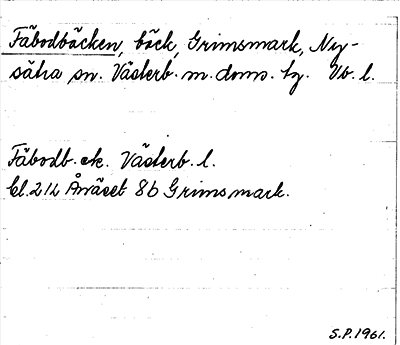 Fäbodbäcken, bäck, Grimsmark, Ny-
sätra sn. Västerb. m. doms. tg. Vb. l.
Fäbodb. ek. Västerb. l.
bl. 214 Ånäset 8b Grimsmark.
S.P. 1961.